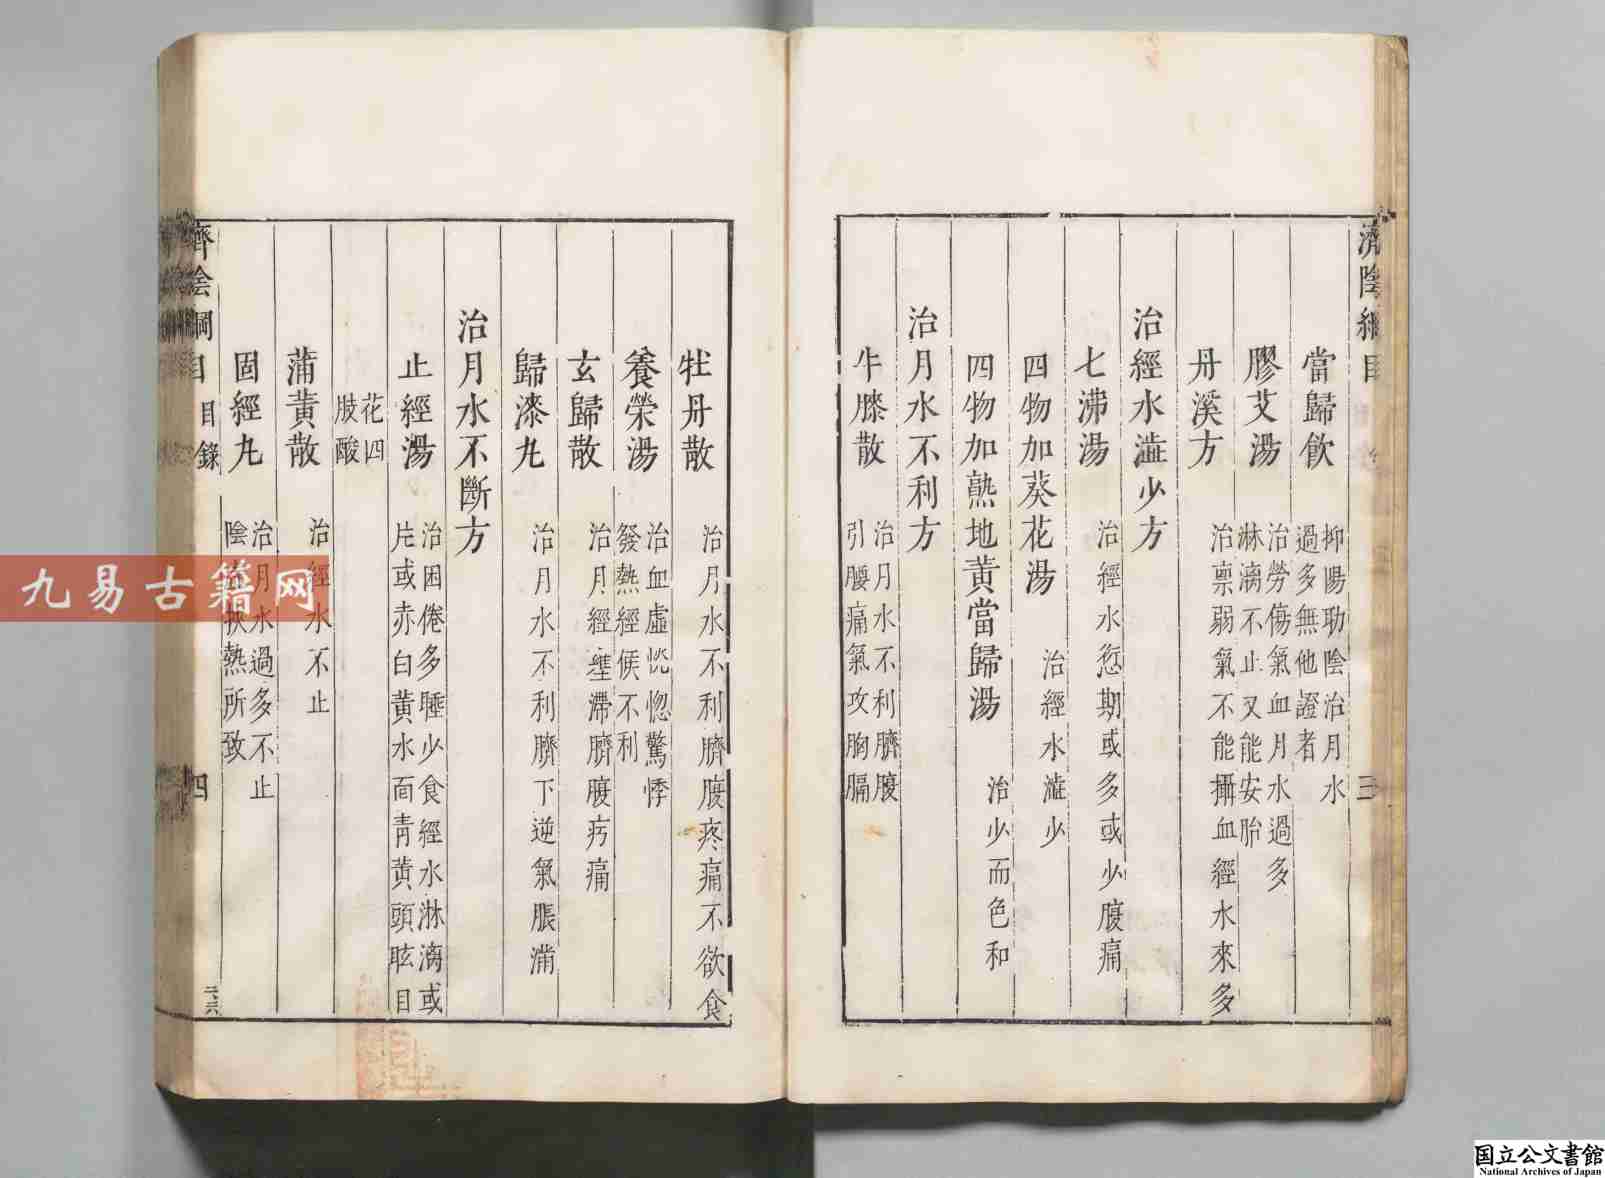 濟陰綱目
三
當歸飲 抑陽助陰治月水
過多無他證者
膠艾湯 治勞傷氣血月水過多
淋漓不止又能安胎
丹溪方 治稟弱氣不能攝血經水來多
治經水澁少方
七沸湯 治經水愆期或多或少腹痛
四物加葵花湯 治經水澁少
四物加熟地黃當歸湯 治少而色和
治月水不利方
牛膝散 治月水不利臍腹
引腰痛氣攻胸膈
牡丹散 治月水不利臍腹疼痛不欲食
養榮湯 治血虛恍惚驚悸
發熱經候不利
玄歸散 治月經壅滯臍腹㽲痛
歸漆丸 治月水不利臍下逆氣脹滿
治月水不斷方
止經湯 治困倦多睡少食經水淋漓或
片或赤白黃水面青黃頭眩目
花四
肢酸
蒲黃散 治經水不止
固經丸 治月水過多不止
陰挾熱所致
濟陰綱目 目錄
四
二六
九易古籍网
国立公文書館
National Archives of Japan